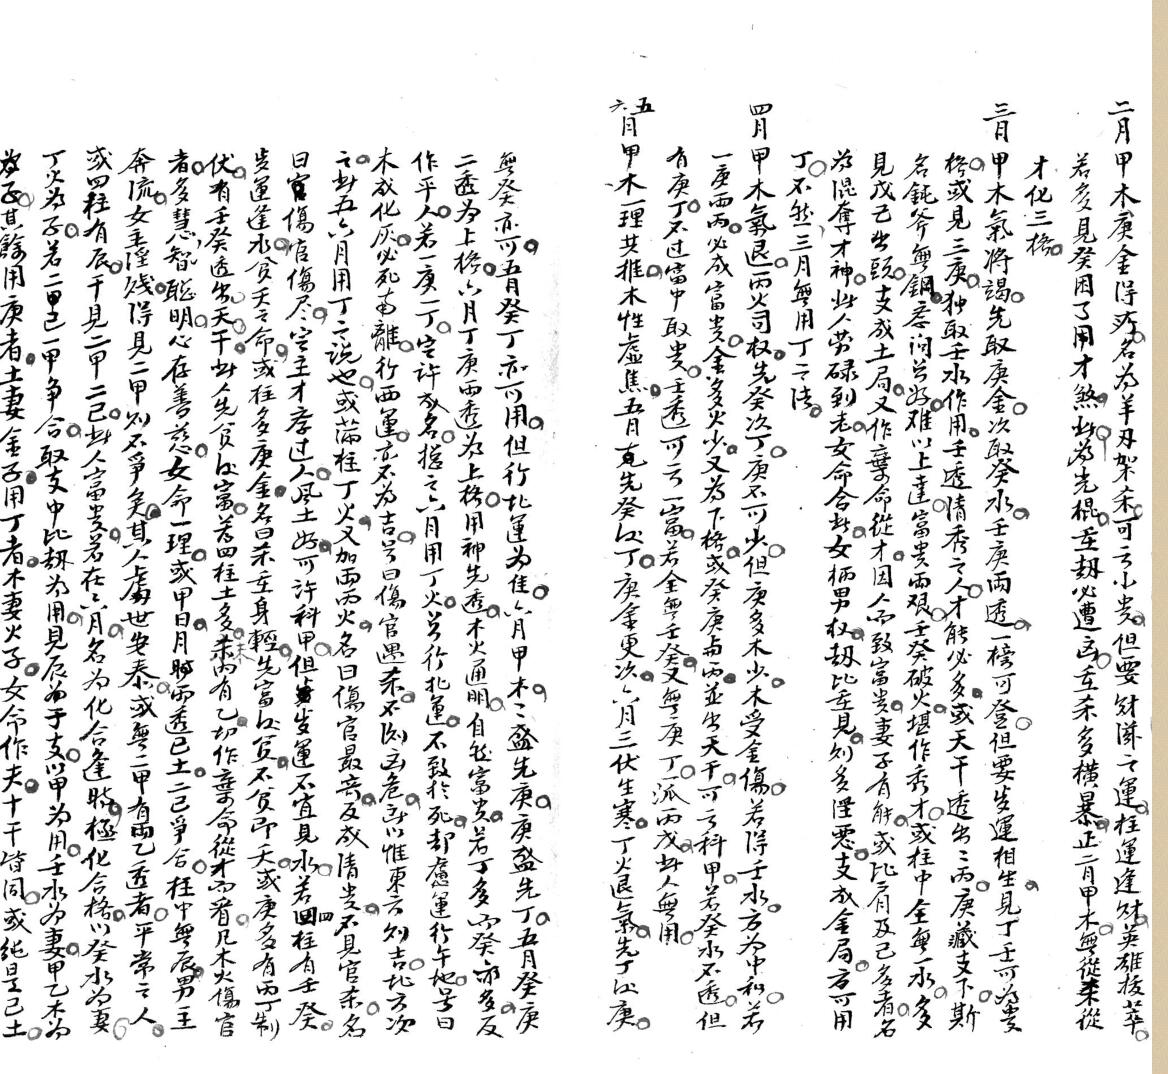 二月甲木庚金得所名為羊刃架杀可云小贵但要财滋亡運柱運逢财英雄拔萃
若多見癸困了用才煞此為光棍重刼必遭凶重杀多横暴正二月甲木無從杀從
才化三格
三月甲木氣将竭先取庚金次取癸水壬庚兩透一榜可登但要步運相生見丁壬可為
格或見三庚独取壬水作用壬透清秀之人才能必多或天干透出二丙庚藏支下斯
名鈍斧無鋼若难以上達富贵兩艰壬癸破火堪作秀才或柱中全無一水多
見戊己出頭支成土局又作棄命從才因人而致富贵妻子有能或比方有及己多者名
為混奪才神此人劳碌到老女命合此女柄男权刼比重見则多淫恶支成金局方可用
丁不然三月無用丁之法
四月甲木氣退丙火司权先癸次丁庚不可少但庚多木少木受金傷若得壬水方为中和若
一庚两丙必成富贵金多火少又為下格或癸庚与丙並出天干可言科甲若癸水不透但
有庚丁不过富中取贵壬透可云一富若全無壬癸又無庚丁一派丙戊此人無用
五六月甲木一理共推木性虚焦五月先癸後丁庚金更次六月三伏生寒丁火退氣先丁後庚
無癸亦可五月癸丁亦可用但行北運为佳六月甲木木盛先庚庚盛先丁五月癸庚
二透为上格六月丁庚两透為上格用神先透木火通明自然富贵若丁多而癸亦多反
作平人若一庚一丁定许成名揔之六月用丁火若行北運不致於死却慮運行午地号曰
木成化灰必死南離行西運亦不为吉号曰傷官遇杀不测凶危所以惟東方则吉北方次
之此五六月用丁之説也或蒲柱丁火又加两丙火名曰傷官最竒反成清贵不見官杀名
曰傷官傷尽定主才孝过人風土好可许科甲但步運不宜見水若四柱有壬癸
步運逢水貧夭之命或柱多庚金名曰杀重身輕先富後貧不貧即夭或庚多有丙丁制
伏有壬癸透出天干此人先貧後富若四柱土多未内有乙切作棄命從才而看凡木火傷官
者多慧智聪明心存善慈女命一理或甲日月时两透已土二己爭合柱中無辰男主
奔流女主淫贱得見二甲则不爭矣其人處世安泰或無二甲有兩乙透者平常之人
或四柱有辰干見二甲二己此人富贵若在六月名为化合逢时極化合格以癸水为妻
丁火为子若二甲己一甲争合取支中比刼为用見辰為于支以甲为用壬水为妻甲乙木为
为子其餘用庚者土妻金子用丁者木妻火子女命作夫十干皆同或純是己土